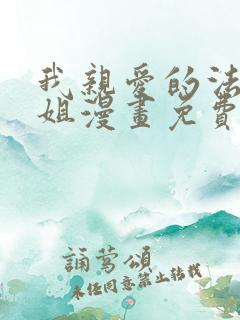 我親愛的法
姐漫畫免費
誦鶯頌
未經同意禁止轉載